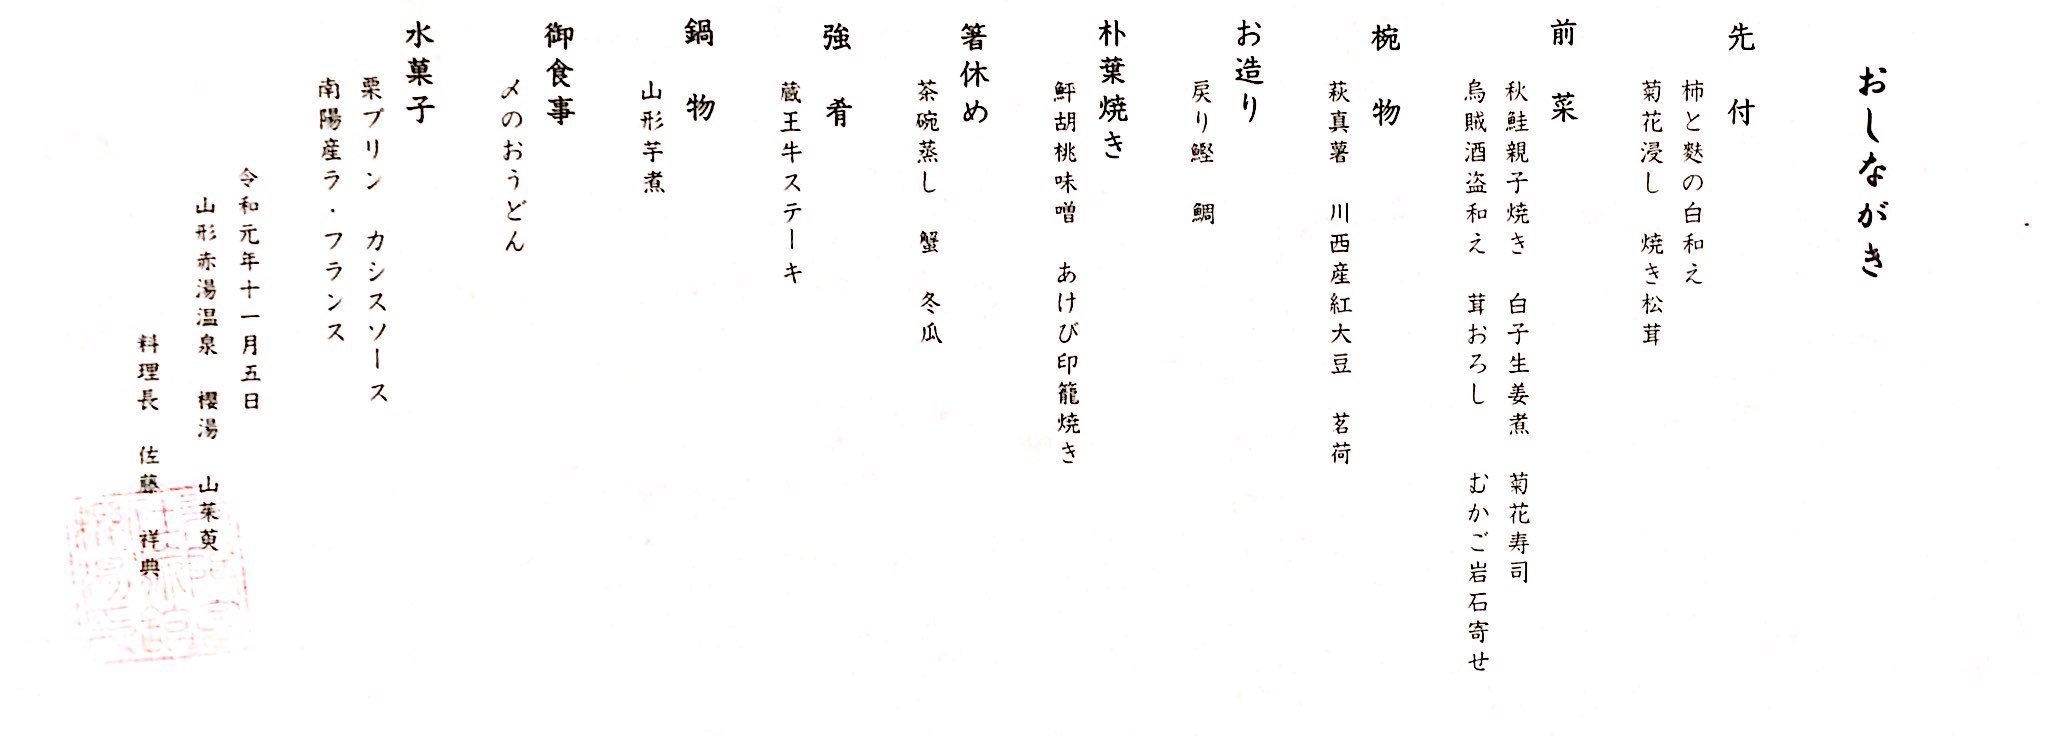 おしながき
先付
柿と麩の白和え
菊花浸し　焼き松茸
前菜
秋鮭親子焼き　白子生姜煮　菊花寿司
烏賊酒盗和え　茸おろし　むかご岩石寄せ
椀物
萩真薯　川西産紅大豆　茗荷
お造り
戻り鰹　鯛
朴葉焼き
鮃胡桃味噌　あけび印籠焼き
箸休め
茶碗蒸し　蟹　冬瓜
強肴
蔵王牛ステーキ
鍋物
山形芋煮
御食事
〆のおうどん
水菓子
栗プリン　カシスソース
南陽産ラ・フランス
令和元年十一月五日
山形赤湯温泉　櫻湯　山茱萸
料理長　佐藤　祥典